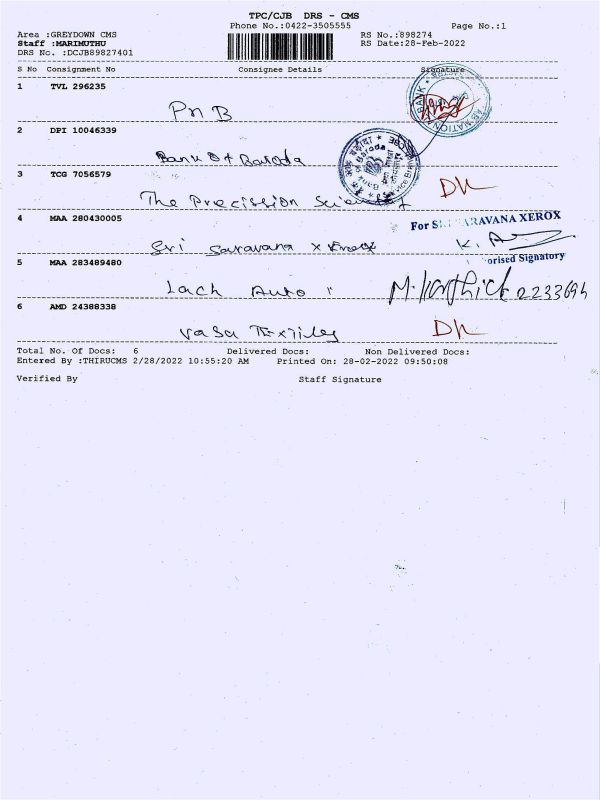 TPC/CJB DRS - CMS
Phone No.:0422-3505555 Page No.:1
Area :GREYDOWN CMS RS No.:898274
Staff :MARIMUTHU RS Date:28-Feb-2022
DRS No. :DCJB89827401
S No Consignment No Consignee Details Signature
1 TVL 296235
PNB
2 DPI 10046339
Bank Of Baroda
3 TCG 7056579
The Precission
4 MAA 280430005
For SRI SARAVANA XEROX
Sri Saravana Xerox K. A
5 MAA 283489480
orised Signatory
Lach Auto M. Karthick 02233694
6 AMD 24388338
Vasa Textiles
Total No. Of Docs: 6 Delivered Docs: Non Delivered Docs:
Entered By :THIRUCMS 2/28/2022 10:55:20 AM Printed On: 28-02-2022 09:50:08
Verified By Staff Signature